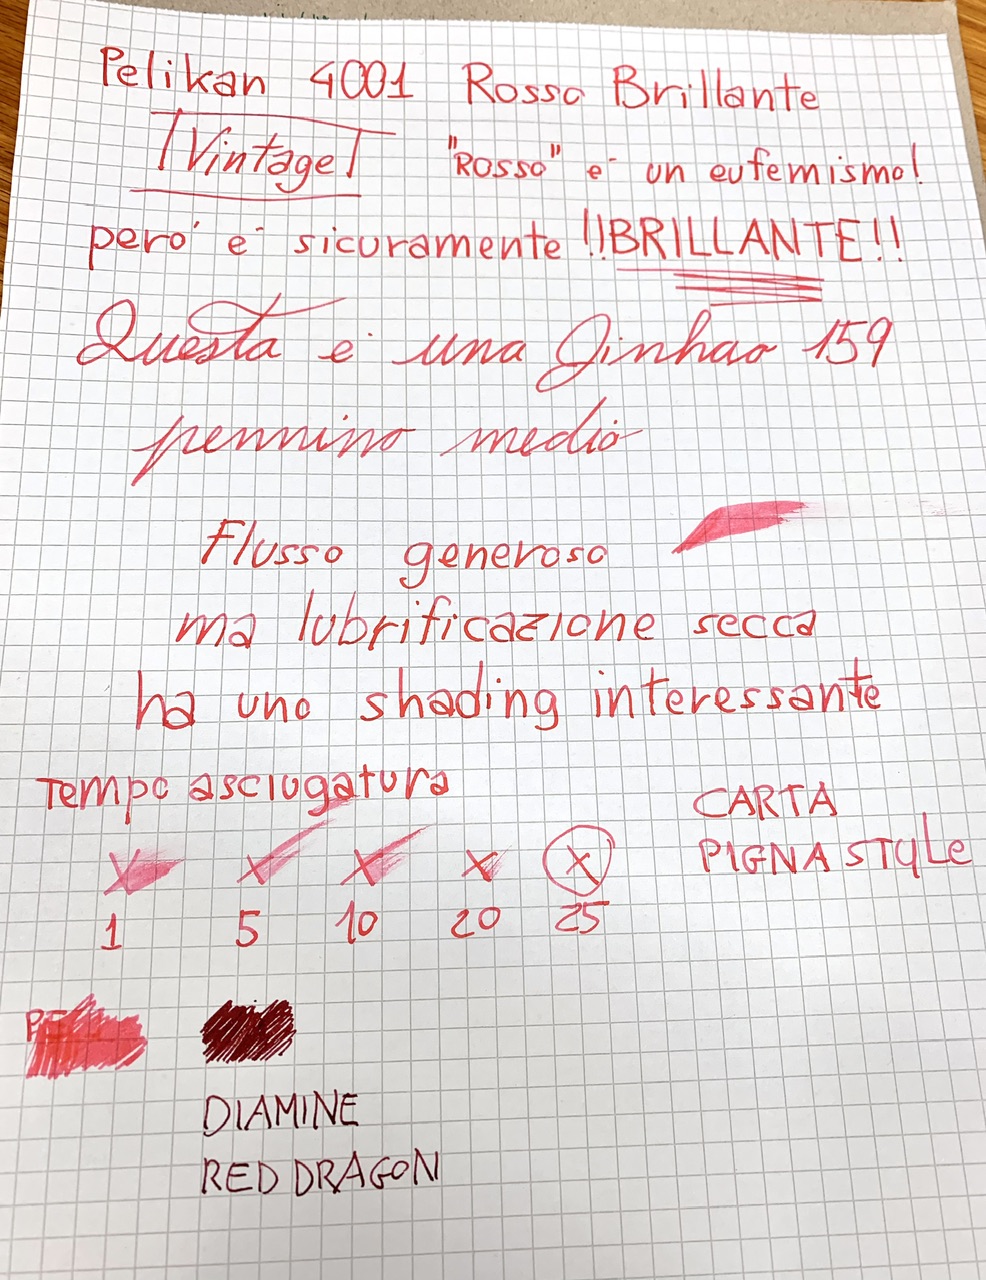 Pelikan 4001 Rosso Brillante
Vintage "Rosso" è un eufemismo!
però è sicuramente !!BRILLANTE!!
Questa è una Jinhao 159
pennino medio
Flusso generoso
ma lubrificazione secca
ha uno shading interessante
Tempo asciugatura
CARTA
PIGNA STYLE
X X X X X
1 5 10 20 25
DIAMINE
RED DRAGON